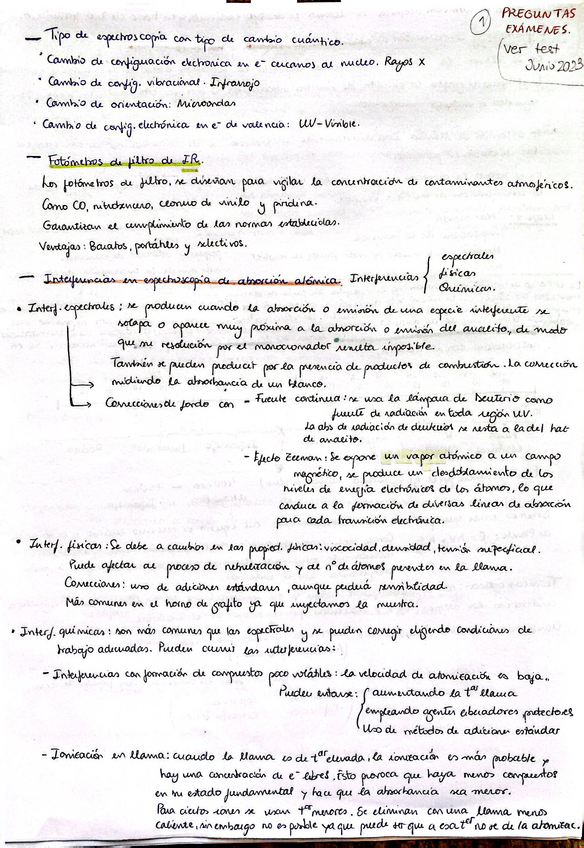 ① PREGUNTAS
EXÁMENES.
(Ver test
Junio 2023
— Tipo de espectroscopía con tipo de cambio cuántico.
· Cambio de configuración electrónica en e⁻ cercanos al nucleo. Rayos X
· Cambio de config. vibracional. Infrarrojo
· Cambio de orientación: Microondas
· Cambio de config. electrónica en e⁻ de valencia: UV-Visible.
— Fotómetros de filtro de IR.
Los fotómetros de filtro, se diseñan para vigilar la concentración de contaminantes atmosféricos.
Como CO, nitrobenceno, cloruro de vinilo y piridina.
Garantizan el cumplimiento de las normas establecidas.
Ventajas: Baratos, portátiles y selectivos.
— Interferencias en espectroscopía de absorción atómica. Interferencias { espectrales
físicas
Químicas.
• Interf. espectrales: se producen cuando la absorción o emisión de una especie interferente se
solapa o aparece muy próxima a la absorción o emisión del analito, de modo
que su resolución por el monocromador resulta imposible.
También se pueden producir por la presencia de productos de combustión. La corrección
→ midiendo la absorbancia de un blanco.
→ Correcciones de fondo con - Fuente continua: se usa la lámpara de Deuterio como
fuente de radiación en toda región UV.
La abs de radiación de deuterio se resta a la del haz
de analito.
- Efecto Zeeman: Se expone un vapor atómico a un campo
magnético, se produce un desdoblamiento de los
niveles de energía electrónicos de los átomos, lo que
conduce a la formación de diversas lineas de absorción
para cada transición electrónica.
• Interf. físicas: Se debe a cambios en las propied. físicas: viscocidad, densidad, tensión superficial.
Puede afectar al proceso de nebulización y al nº de átomos presentes en la llama.
Correcciones: uso de adiciones estándares, aunque perderá sensibilidad
Más comunes en el horno de grafito ya que inyectamos la muestra.
• Interf. químicas: son más comunes que las espectrales y se pueden corregir eligiendo condiciones de
trabajo adecuadas. Pueden ocurrir las interferencias:
- Interferencias con formación de compuestos poco volátiles: la velocidad de atomización es baja.
Pueden evitarse: { aumentando la tᵃ llama
empleando agentes liberadores protectores
Uso de métodos de adiciones estándar
- Ionización en llama: cuando la llama es de tᵃ elevada, la ionización es más probable y
hay una concentración de e⁻ libres. Esto provoca que haya menos compuestos
en su estado fundamental y hace que la absorbancia sea menor.
Para ciertos iones se usan tᵃ menores. Se eliminan con una llama menos
caliente, sin embargo no es posible ya que puede ser que a esa tᵃ no se dé la atomizac.